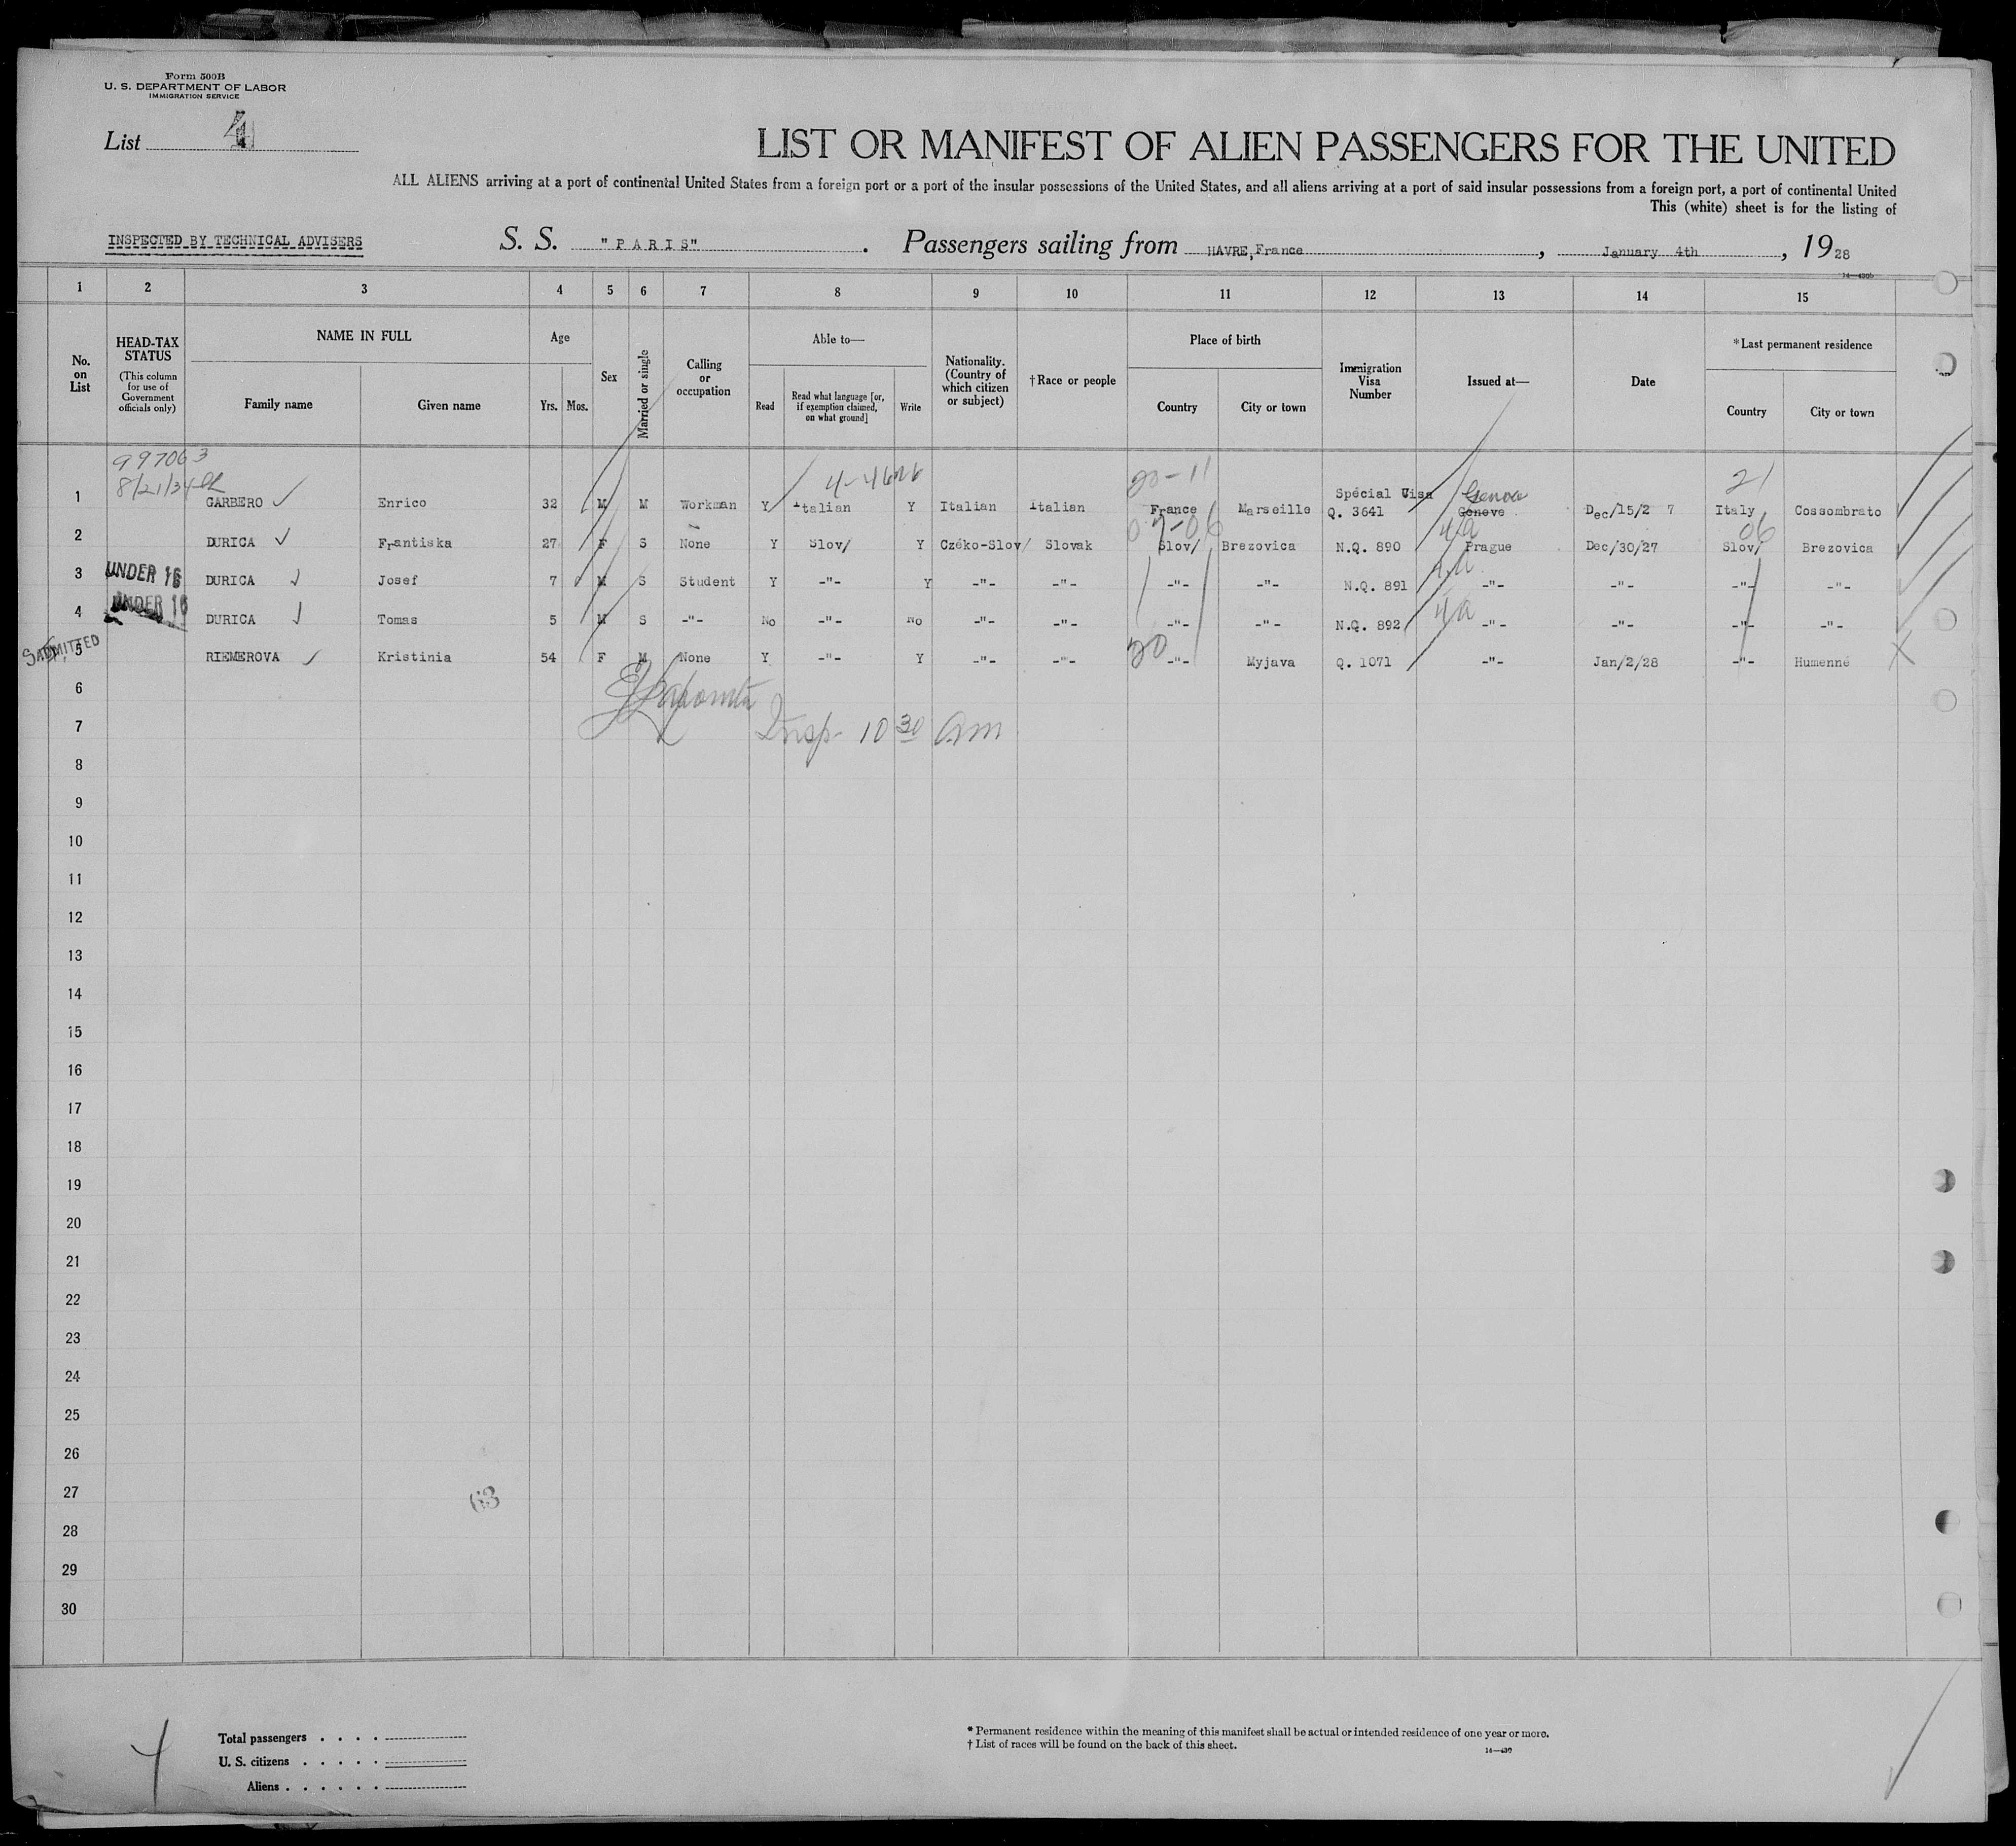 Form 500B
U. S. DEPARTMENT OF LABOR
IMMIGRATION SERVICE
List 4
LIST OR MANIFEST OF ALIEN PASSENGERS FOR THE UNITED
ALL ALIENS arriving at a port of continental United States from a foreign port or a port of the insular possessions of the United States, and all aliens arriving at a port of said insular possessions from a foreign port, a port of continental United
This (white) sheet is for the listing of
INSPECTED BY TECHNICAL ADVISERS S. S. "PARIS" . Passengers sailing from HAVRE, France , January 4th , 1928
1 2 3 4 5 6 7 8 9 10 11 12 13 14 15
No. on List
HEAD-TAX STATUS
(This column for use of Government officials only)
NAME IN FULL
Family name Given name
Age
Yrs. Mos.
Sex
Married or single
Calling or occupation
Able to—
Read Read what language [or, if exemption claimed, on what ground] Write
Nationality. (Country of which citizen or subject)
†Race or people
Place of birth
Country City or town
Immigration Visa Number
Issued at—
Date
*Last permanent residence
Country City or town
997063
8/21/34
20-11
21
Genoa
1 GARBERO Enrico 32 M M Workman Y Italian Y Italian Italian France Marseille Spécial Visa Q. 3641 Geneve Dec/15/2 7 Italy Cossombrato
06
4a
2 DURICA Frantiska 27 F S None Y Slov/ Y Czéko-Slov/ Slovak Slov/ Brezovica N.Q. 890 Prague Dec/30/27 Slov/ Brezovica
3 UNDER 16 DURICA Josef 7 M S Student Y -"- Y -"- -"- -"- -"- N.Q. 891 -"- -"- -"- -"-
4a
4 UNDER 16 DURICA Tomas 5 M S -"- No -"- No -"- -"- -"- -"- N.Q. 892 -"- -"- -"- -"-
ADMITTED
20
5 RIEMEROVA Kristinia 54 F M None Y -"- Y -"- -"- -"- Myjava Q. 1071 -"- Jan/2/28 -"- Humenné
6
7 Insp- 10 30 am
8
9
10
11
12
13
14
15
16
17
18
19
20
21
22
23
24
25
26
27
63
28
29
30
Total passengers . . . .
U. S. citizens . . . . .
Aliens . . . . . .
* Permanent residence within the meaning of this manifest shall be actual or intended residence of one year or more.
† List of races will be found on the back of this sheet.
14—430